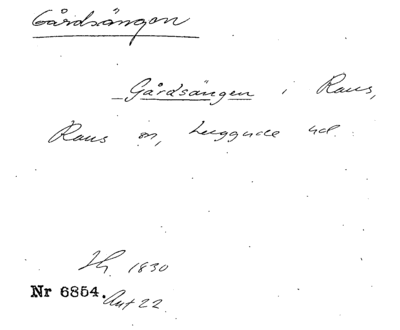 Gårdsängen
Gårdsängen i Raus,
Raus sn, Luggude hd.
1830
Nr 6854.
Ant 22.